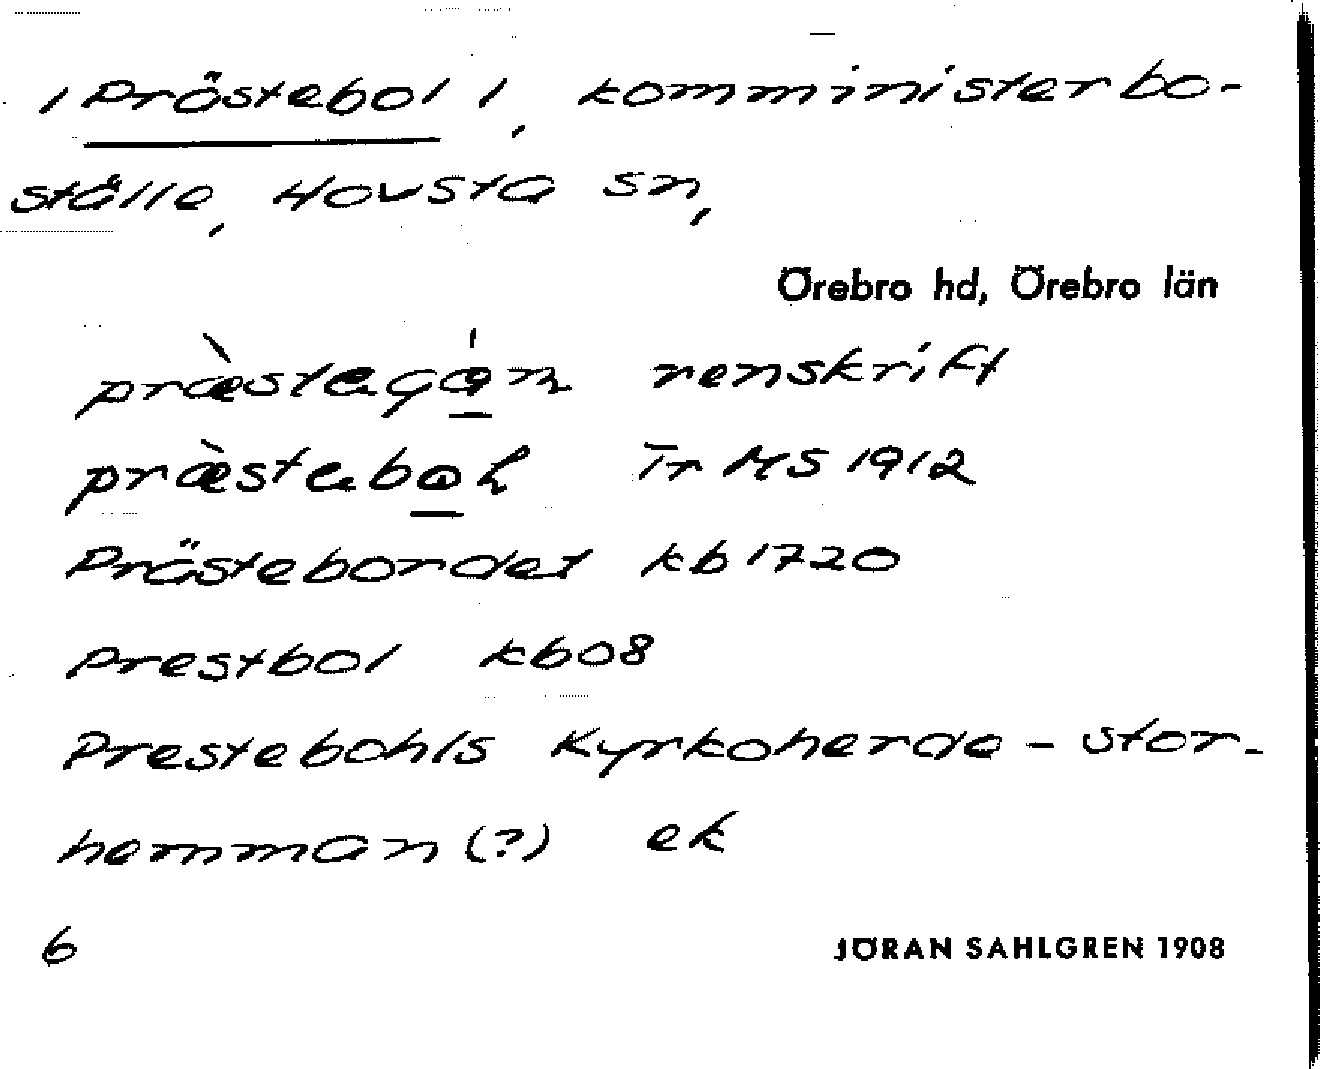 / Prästebol /, komministerbo-
ställe, Hovsta sn,
Örebro hd, Örebro län
præ̀stegá̱n renskrift
præ̀stebo̱ɫ Tr MS 1912
Prästebordet kb 1720
Prestbol kb08
Prestebohls Kyrkoherde - stor-
hemman (?) ek
6
JÖRAN SAHLGREN 1908